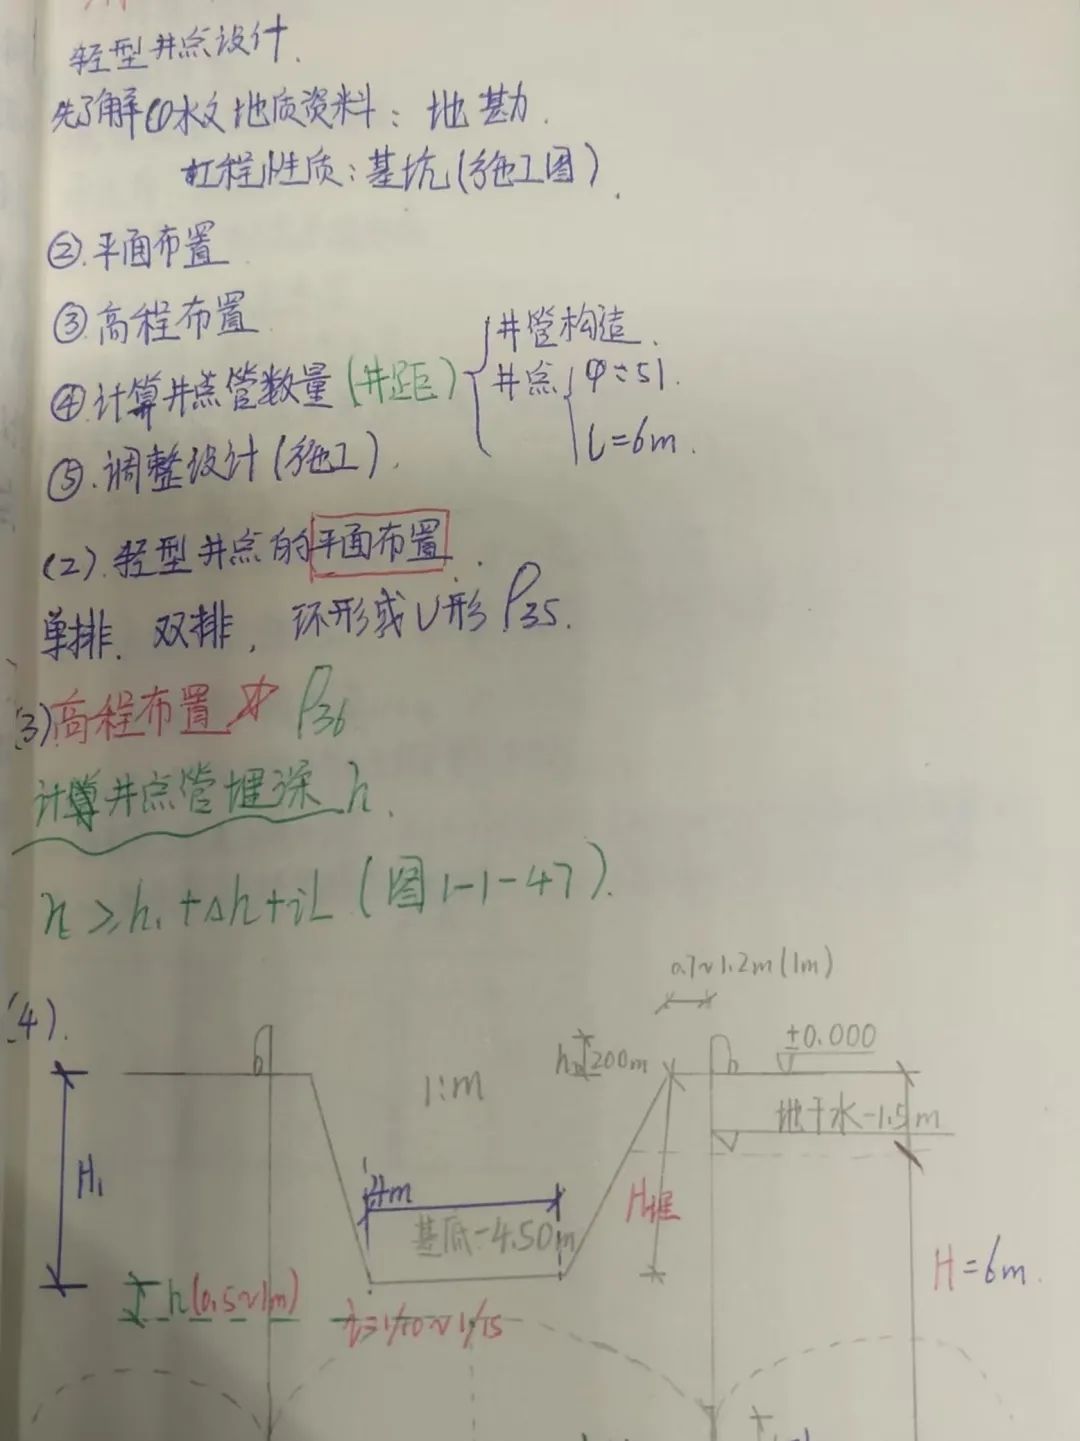 轻型井点设计.
先了解①水文地质资料：地勘.
工程性质：基坑(施工图).
②.平面布置
③.高程布置
④.计算井点管数量(井距)
井管构造.
井点 φ=51.
L=6m.
⑤.调整设计(施工).
(2).轻型井点的平面布置.
单排.双排，环形或U形 P35.
(3)高程布置 P36
计算井点管埋深h.
h≥h₁+Δh+iL(图1-1-47).
(4).
0.7~1.2m(1m)
200m
±0.000
1:m
地下水-1.5m
H₁
4m
H埋
基底-4.50m
H=6m.
h(0.5~1m)
i=1/10~1/15